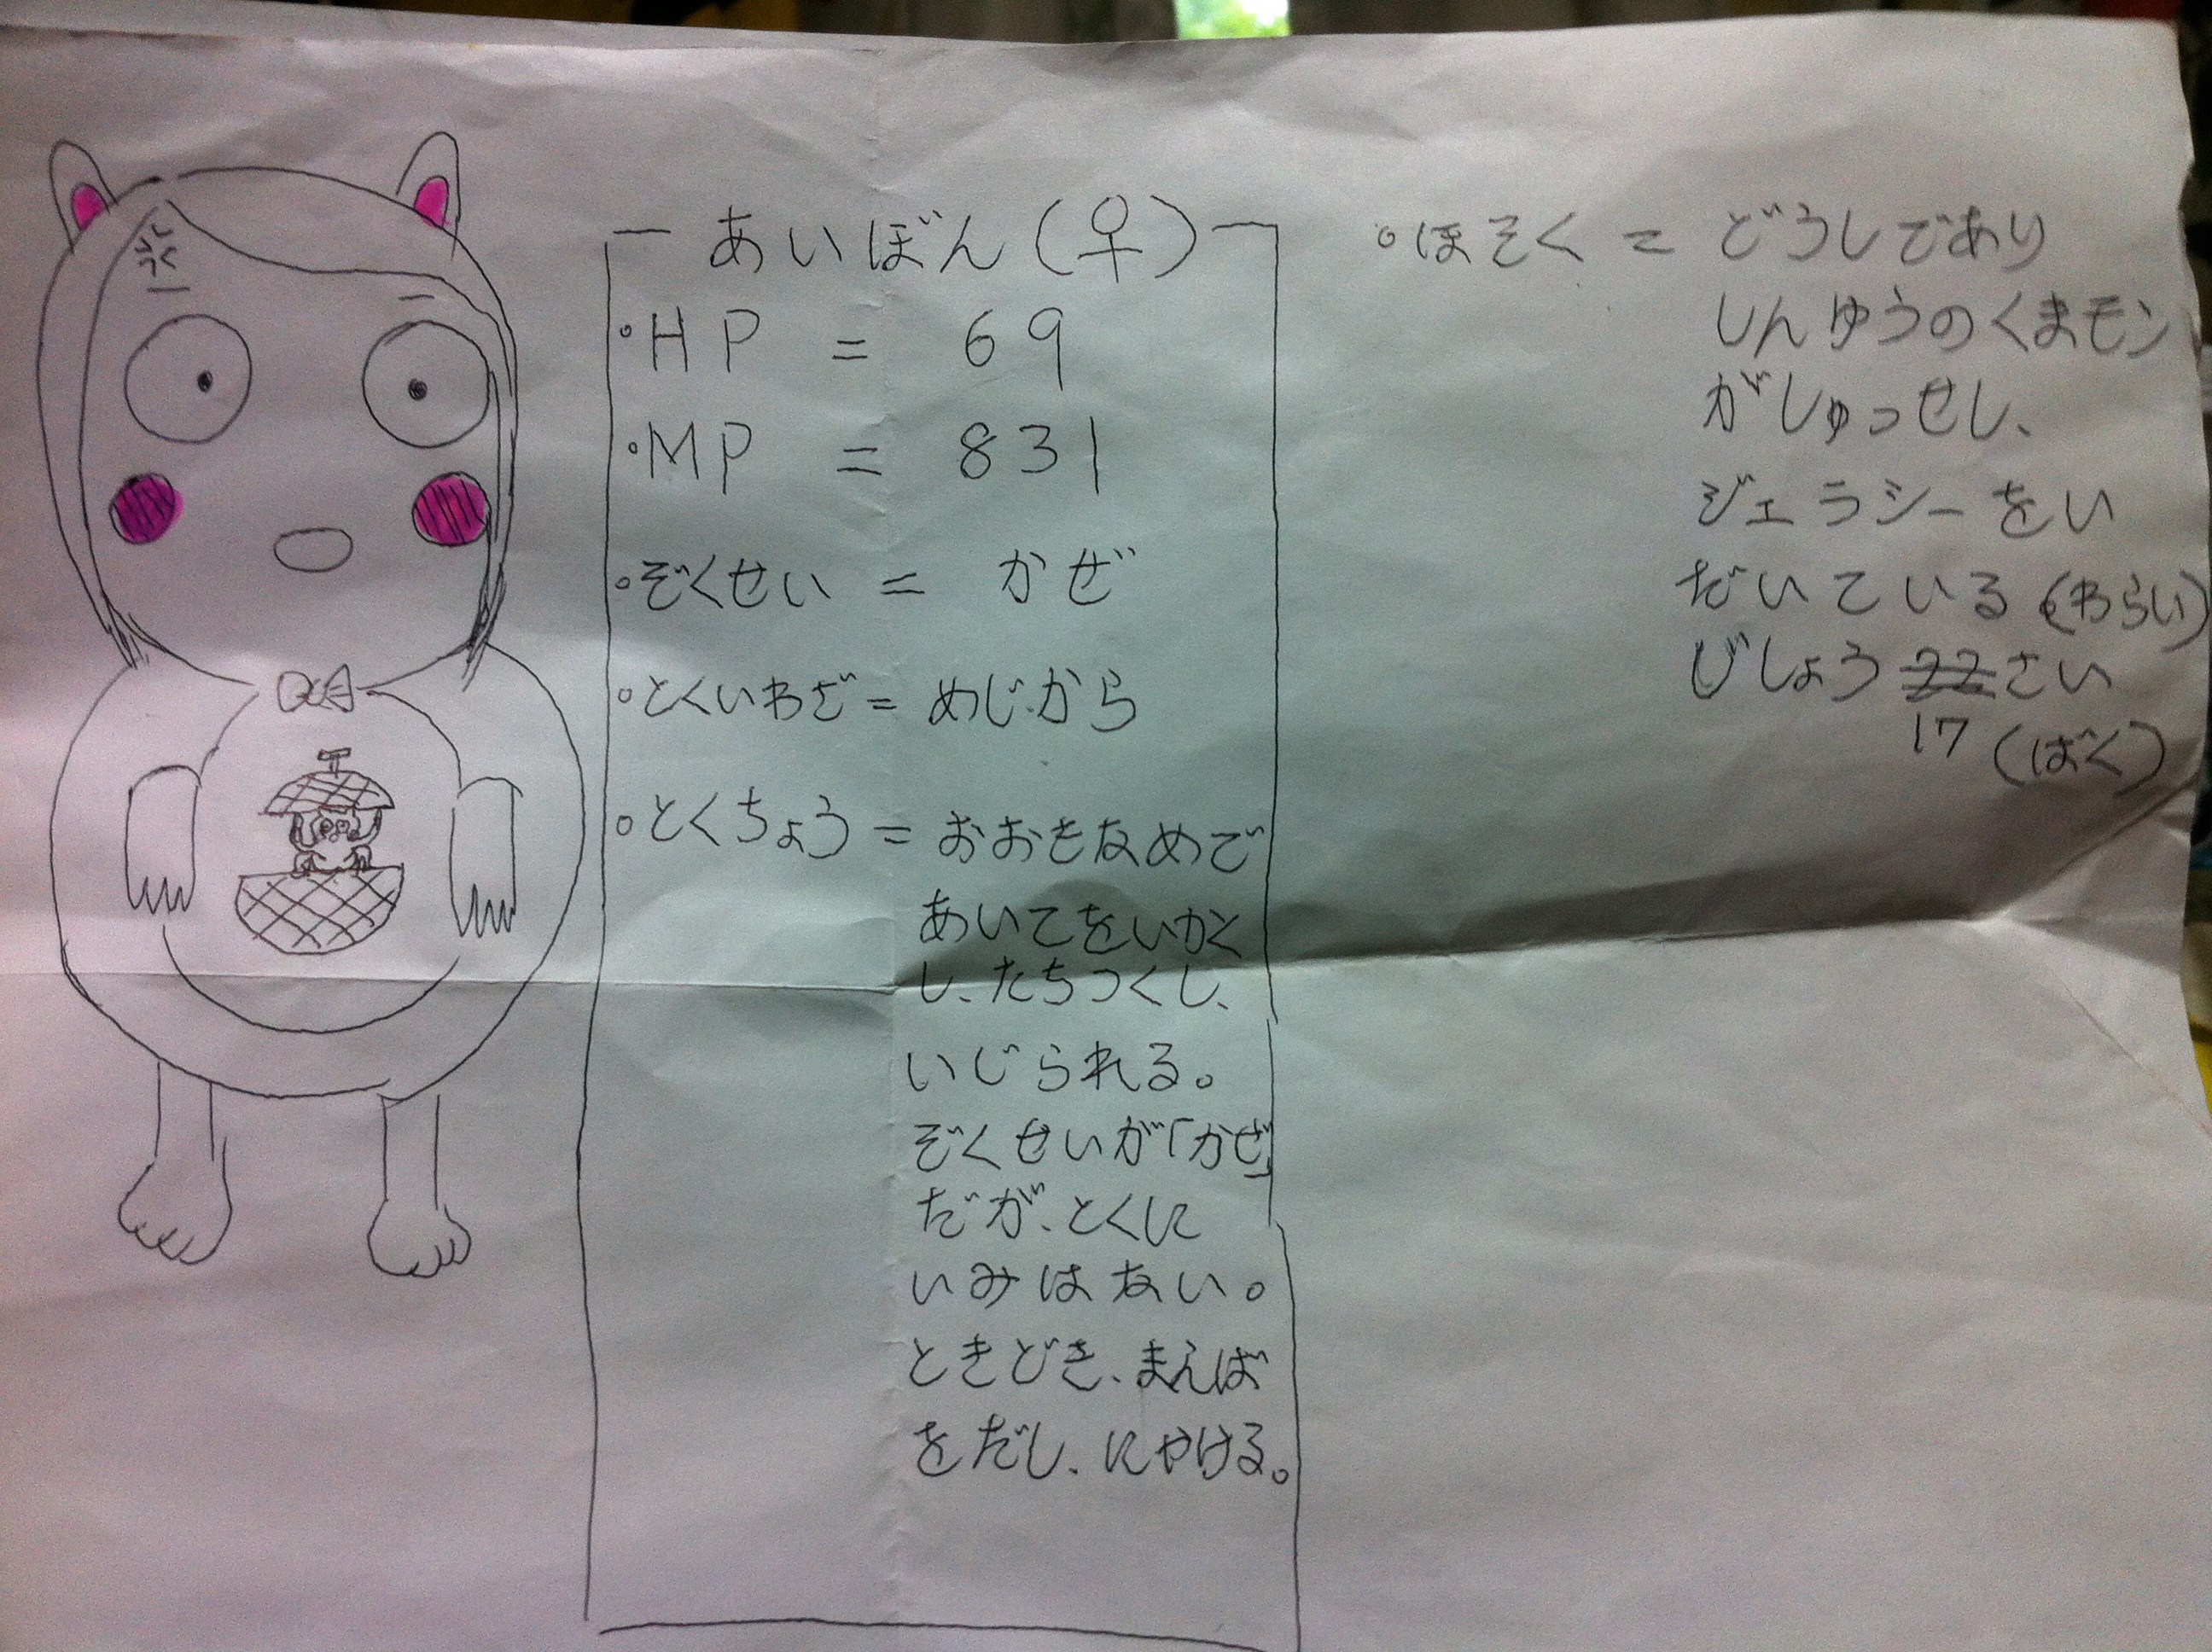 あいぼん(♀)
・HP = 69
・MP = 831
・ぞくせい = かぜ
・とくいわざ = めじから
・とくちょう = おおきなめで
あいてをいかく
し、たちつくし、
いじられる。
ぞくせいが「かぜ」
だが、とくに
いみはない。
ときどき、まえば
をだし、にやける。
・ほそく = どうしであり
しんゆうのくまモン
がしゅっせし、
ジェラシーをい
だいている(わらい)
じしょう 22さい
17 (ばく)